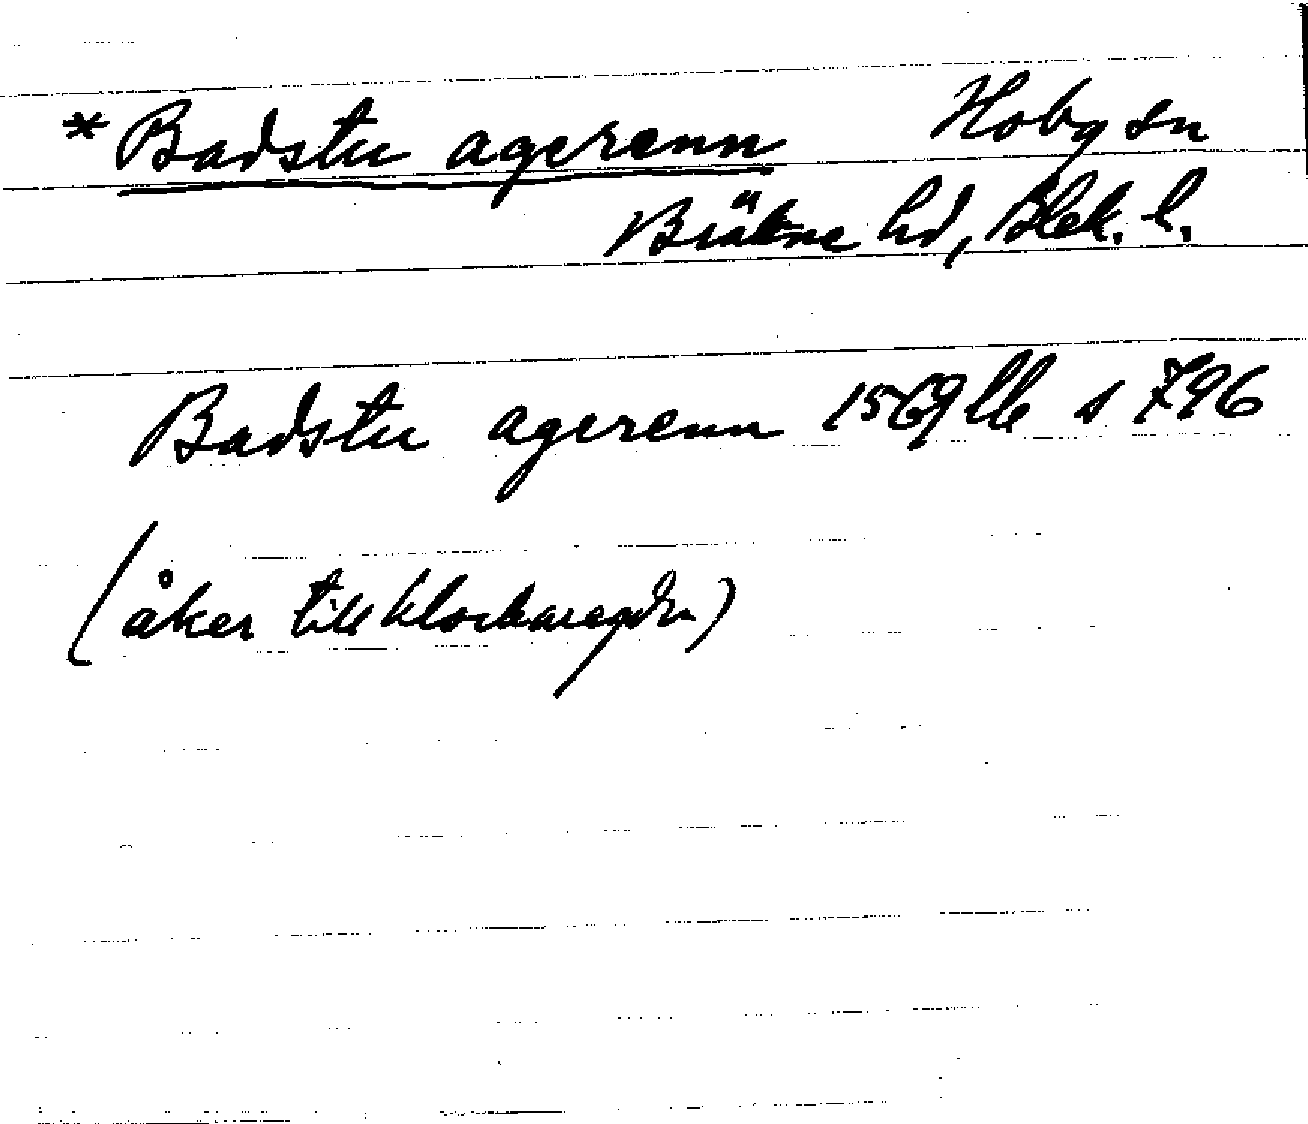 *Badstu agerenn Hoby sn
Bräkne hd, Blek. l.
Badstu agerenn 1569 llb s 796
(åker till klockaregdn)